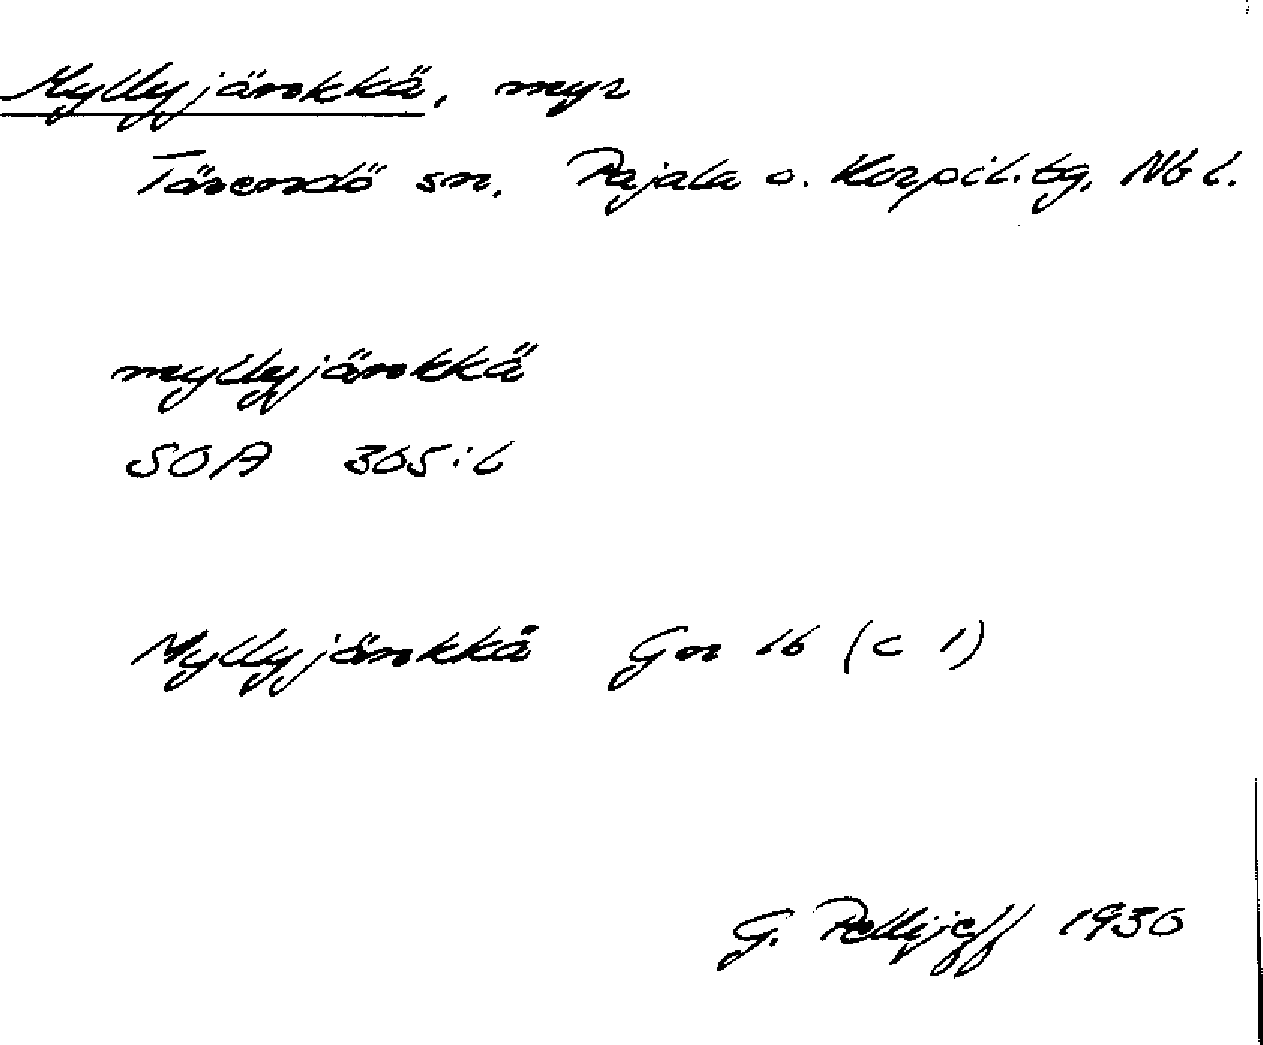 Myllyjänkkä, myr
Tärendö sn, Pajala o. Korpil. tg, Nb l.
myllyjänkkä
SOA 365:6
Myllyjänkkä Gn 16 (c 1)
G. Pellijeff 1930